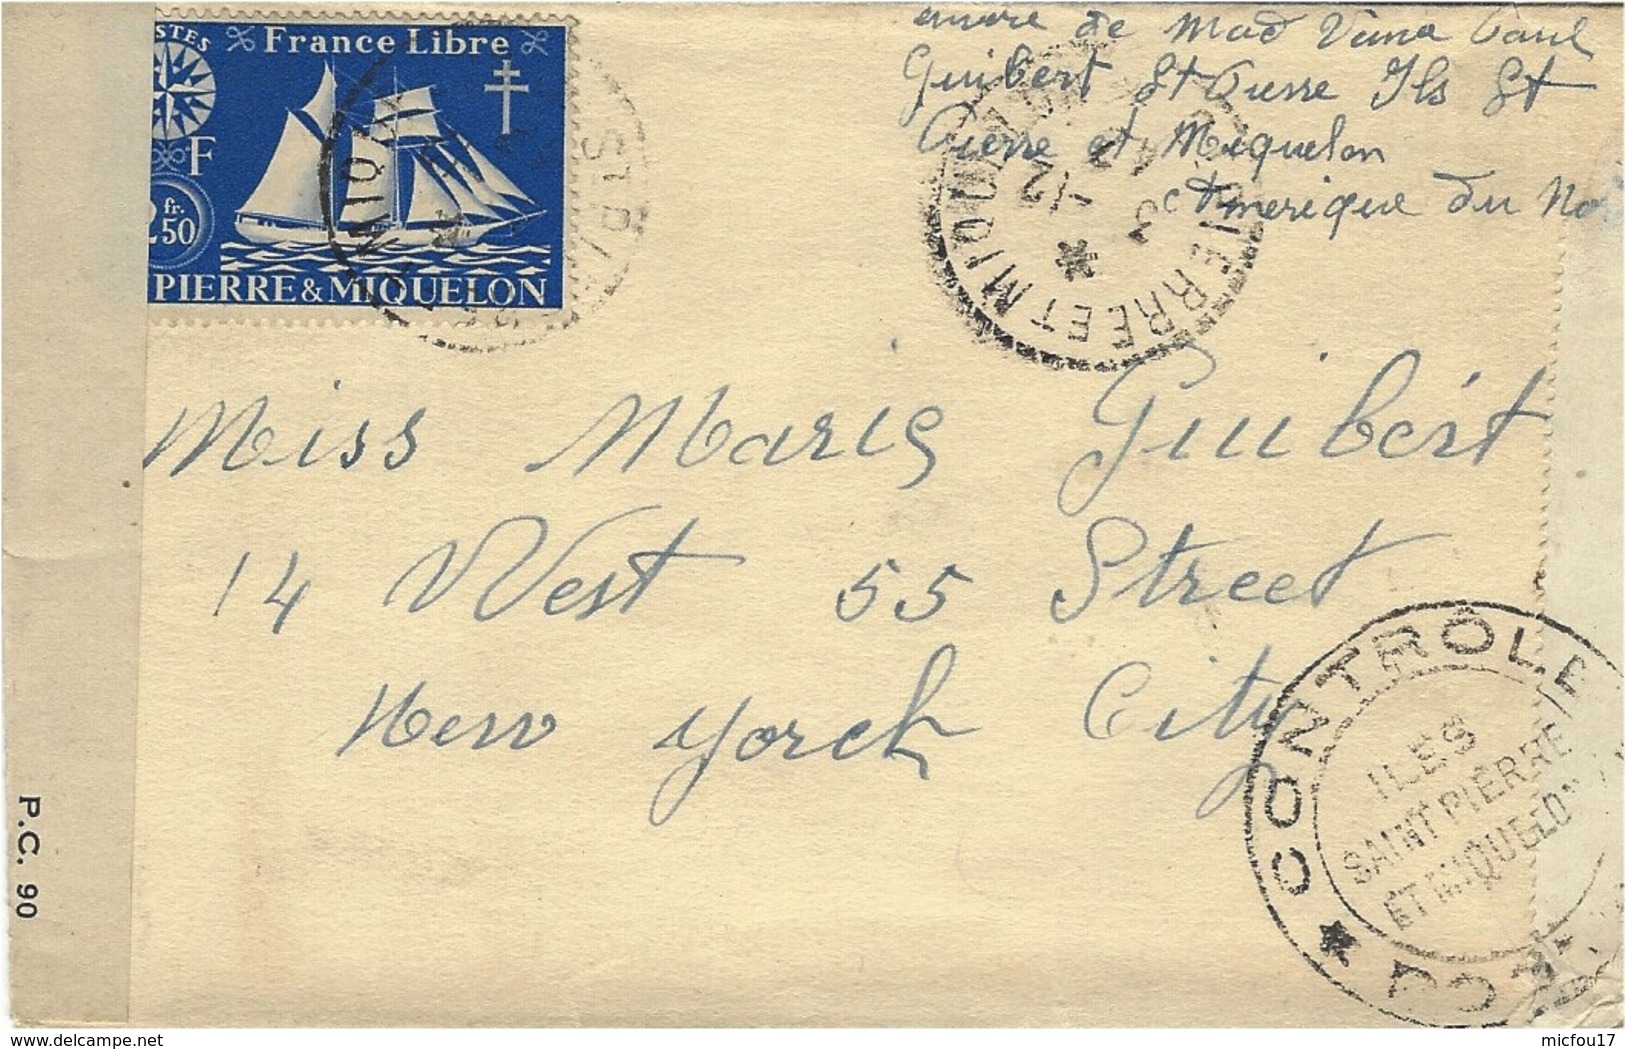 STES France Libre
F
2 fr. 50
PIERRE & MIQUELON
de Mad Paul
Guibert St Pierre Ils St
Pierre et Miquelon
Amerique du No
PIERRE ET MIQUELON
3 -12 42
Miss Marie Guibert
14 West 55 Street
New Yorck City
CONTRÔLE
ILES
SAINT PIERRE
ET MIQUELON
P.C. 90
delcampe.net
micfou17